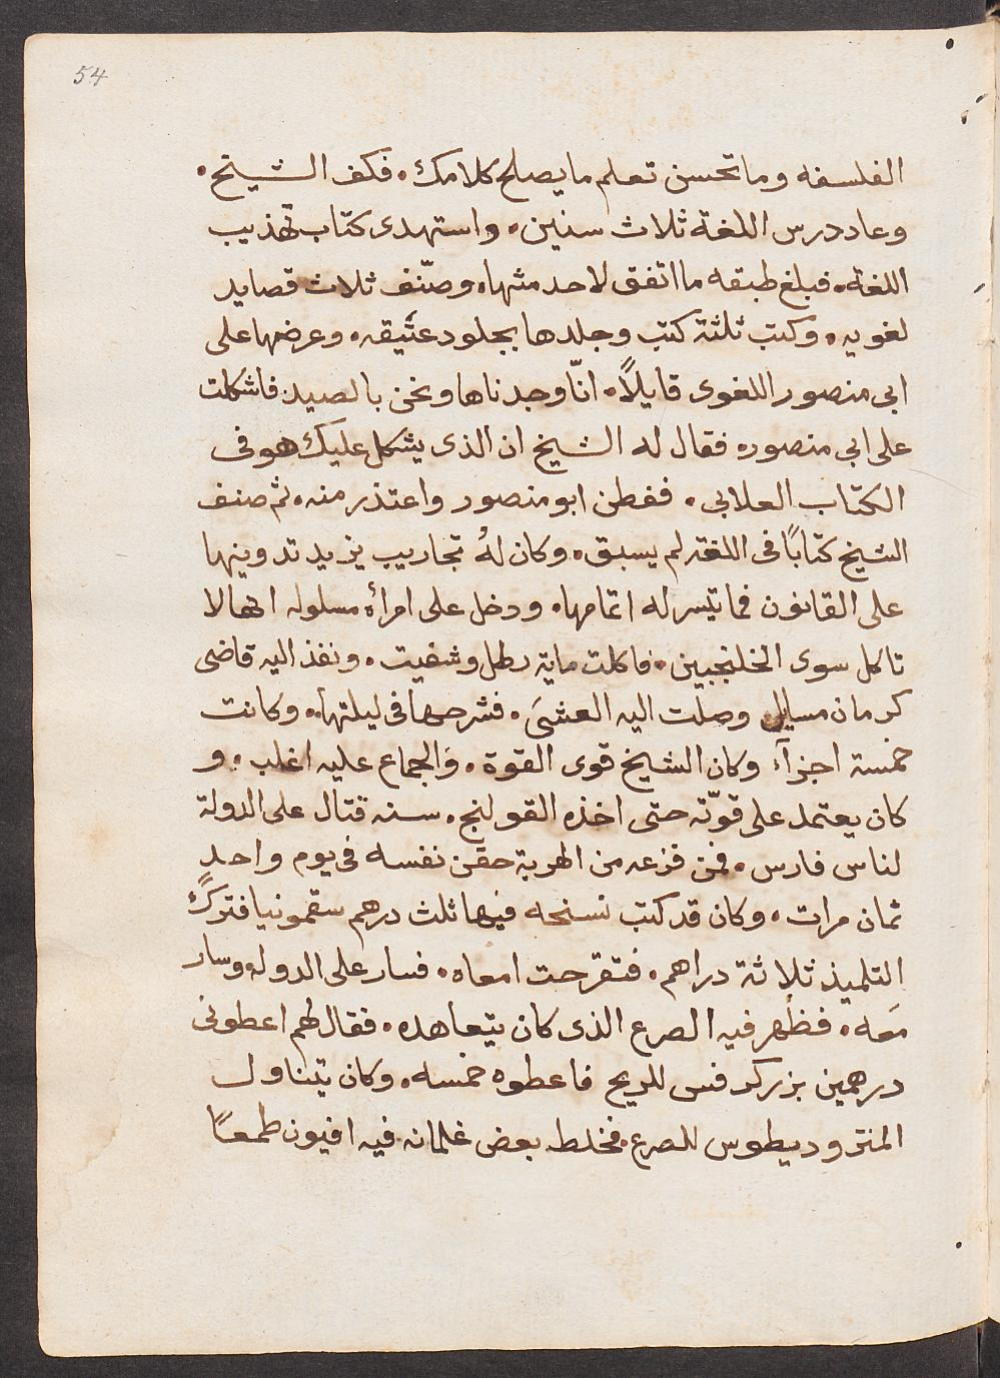 54
الفلسفه وما تحسن تعلم ما يصلح كلامك . فكف الشيخ .
وعاد درس اللغة ثلاث سنين . واستهدى كتاب تهذيب
اللغة . فبلغ طبقه ما اتفق لاحد مثلها . وصنّف ثلاث قصايد
لغويه . وكتب ثلثة كتب وجلدها بجلود عتيقه . وعرضها على
ابي منصور اللغوى قايلاً . انّا وجدناها ونحن بالصيد . فاشكلت
على ابي منصور . فقال له الشيخ ان الذى يشكل عليك هو فى
الكتاب العلابي . ففطن ابو منصور واعتذر منه . ثم صنف
الشيخ كتابًا فى اللغة لم يسبق . وكان لهُ تجاريب يزيد تدوينها
على القانون فما تيسر له اتمامها . ودخل على امرأة مسلوله انها لا
تاكل سوى الخلنجبين . فاكلت ماية رطل وشفيت . ونفذ اليه قاضى
كرمان مسايل وصلت اليه العشىَ . فشرحها فى ليلتها . وكانت
خمسة اجزآء وكان الشيخ قوى القوة . والجماع عليه اغلب . و
كان يعتمد على قوّته حتى اخذه القولنج . سنه قتال على الدولة
لناس فارس . فمن فزعه من الهربة حقن نفسه فى يوم واحدٍ
ثمان مرات . وكان قد كتب نسخه فيها ثلث درهم سقمونيا فتركَ
التلميذ ثلاثة دراهم . فتقرحت امعاه . فسار على الدوله وسار
مَعه . فظهر فيه الصرع الذى كان يتعاهده . فقال لهم اعطونى
درهمين بزر كرفس للريح فاعطوه خمسه . وكان يتناول
المنثروديطوس للصرع . فخلط بعض غلمانه فيه افيون طمعًا